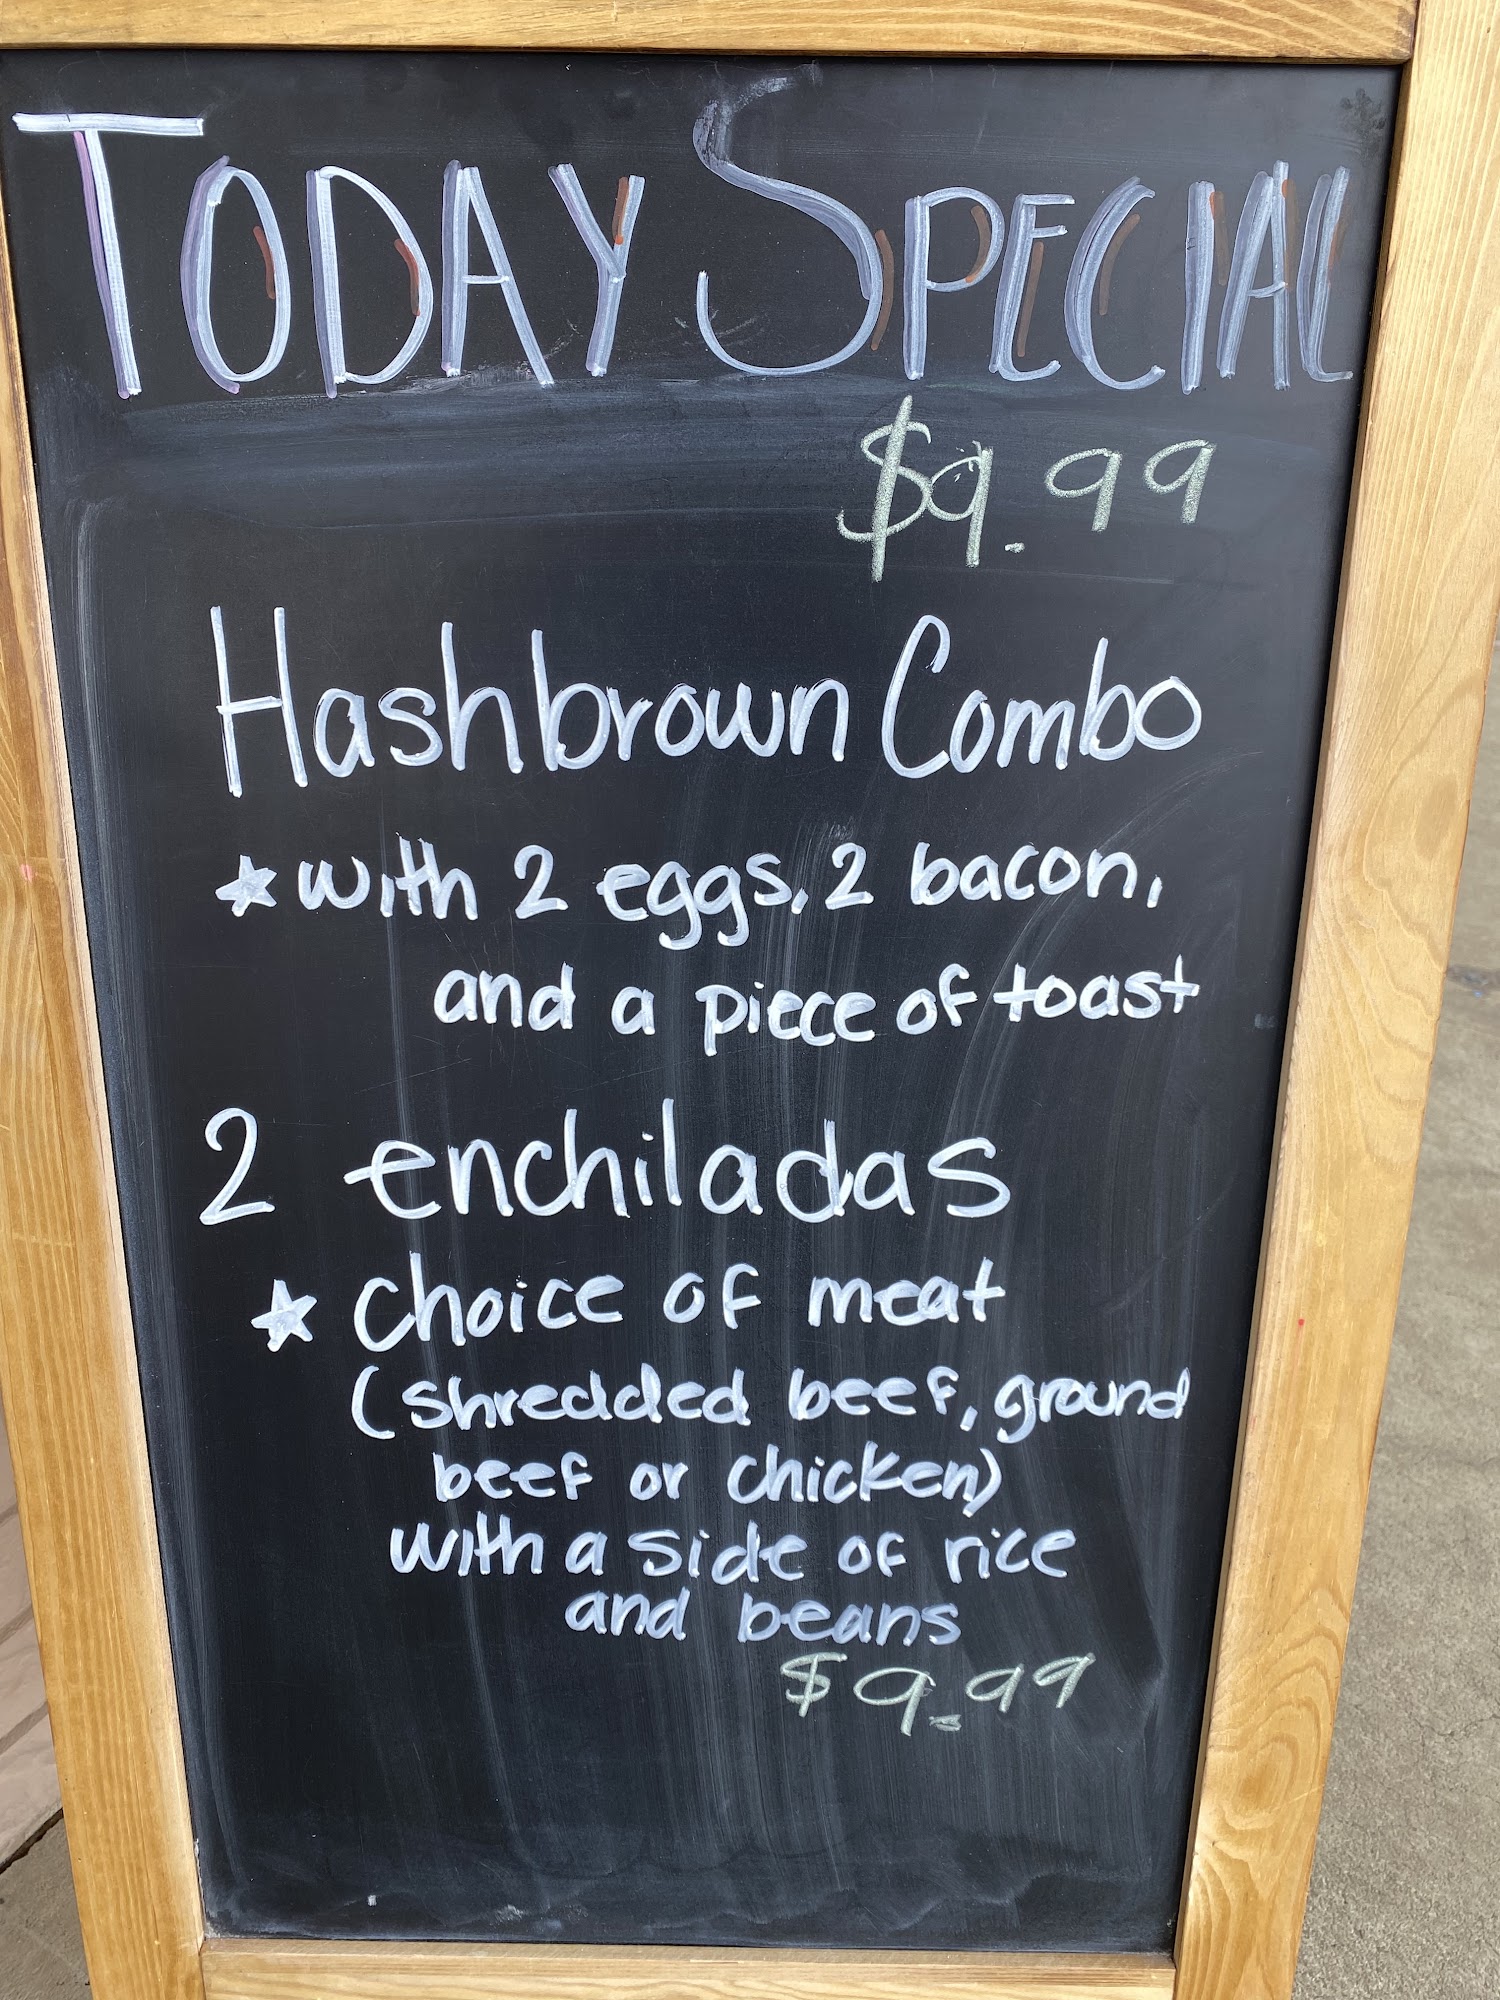 TODAY SPECIAL
$9.99
Hashbrown Combo
★ with 2 eggs, 2 bacon,
and a piece of toast
2 enchiladas
★ choice of meat
(shredded beef, ground
beef or chicken)
with a side of rice
and beans
$9.99